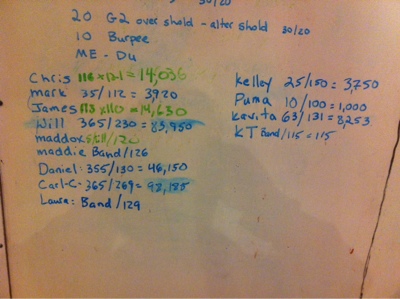 30/20
20 G2 over shold - alter shold 30/20
10 Burpee
ME - Du
Chris 116 x 121 = 14,036
mark 35/112 = 3920
James 113 x 110 = 14,630
Will 365/230 = 83,950
maddox /120
maddie Band/126
Daniel: 355/130 = 46,150
Carl-C- 365/269 = 98,185
Laura: Band/129
Kelley 25/150 = 3,750
Puma 10/100 = 1,000
Kavita 63/131 = 8,253
KT Band/115 = 115